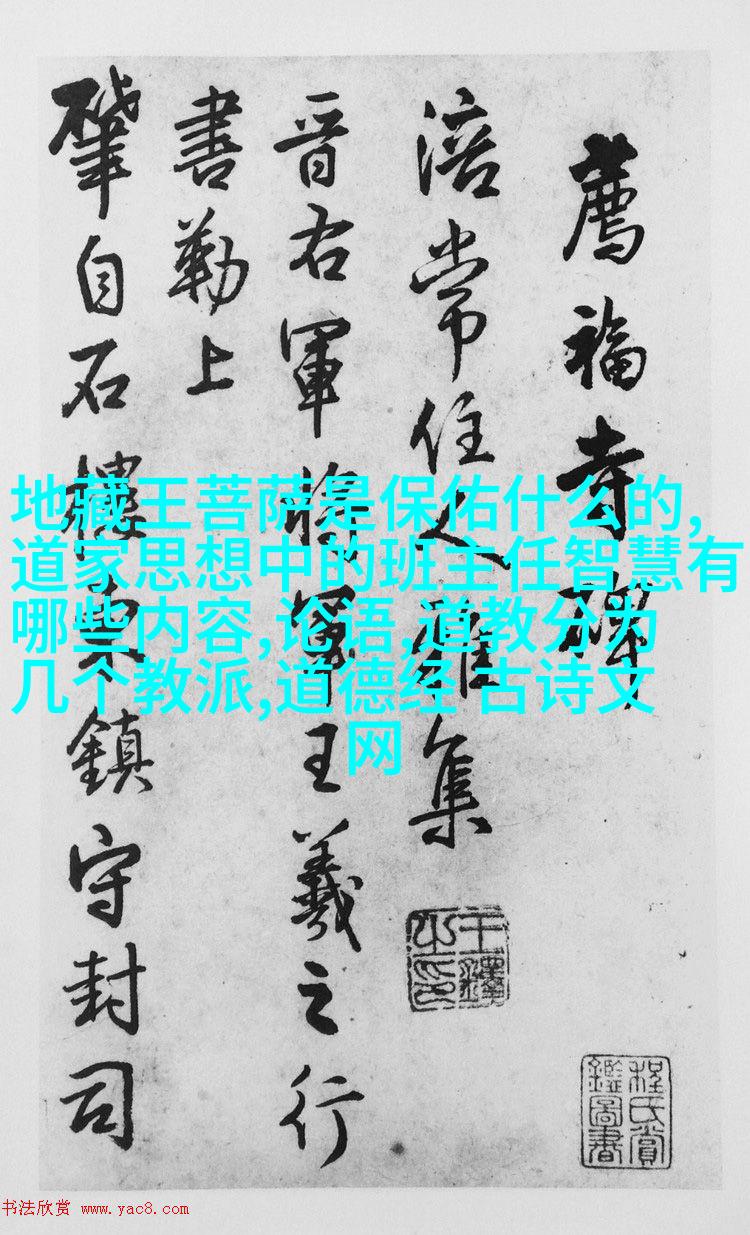 薦福寺碑
涪常住雜集
晋右軍將軍王羲之行
書勒上
肇自石樓東鎮守封司
王鐸之印
程氏賞鑑圖書
地藏王菩萨是保佑什么的,
道家思想中的班主任智慧有
哪些内容,论语,道教分为
几个教派,道德经 古诗文
网
书法欣赏 www.yac8.com